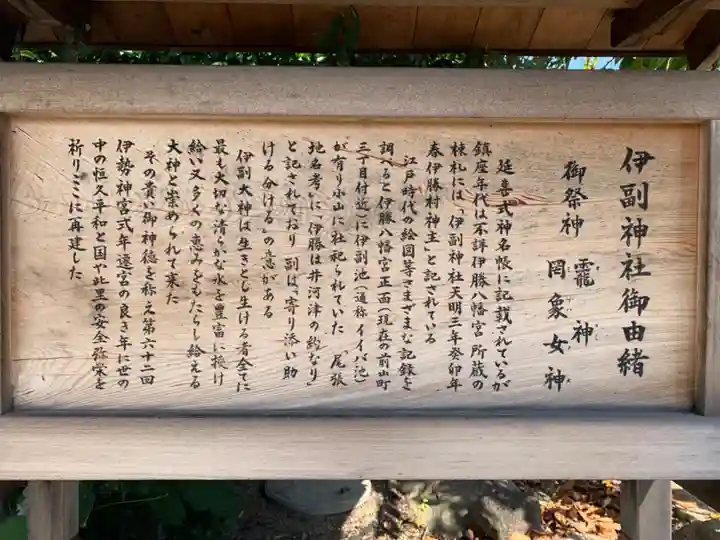 伊副神社御由緒
御祭神 龗神
罔象女神
延喜式神名帳に記載されているが
鎮座年代は不詳伊勝八幡宮所蔵の
棟札には、「伊副神社天明三年癸卯年
春伊勝村神主」と記されている
江戸時代の絵図等さまざまな記録を
調べると伊勝八幡宮正面(現在の前山町
三丁目付近)に伊副池(通称イイバ池)
が有り小山に社祀られていた 「尾張
地名考」に、「伊勝は井河津の約なり」
と記されており 副は、「寄り添い助
ける分ける」の意がある
伊副大神は生きとし生ける者全てに
最も大切な清らかな水を豊富に授け
給い又多くの恵みをもたらし給える
大神と崇められて来た
その貴い御神徳を称え第六十二回
伊勢神宮式年遷宮の良き年に世の
中の恒久平和と国や此里の安全弥栄を
祈りここに再建した